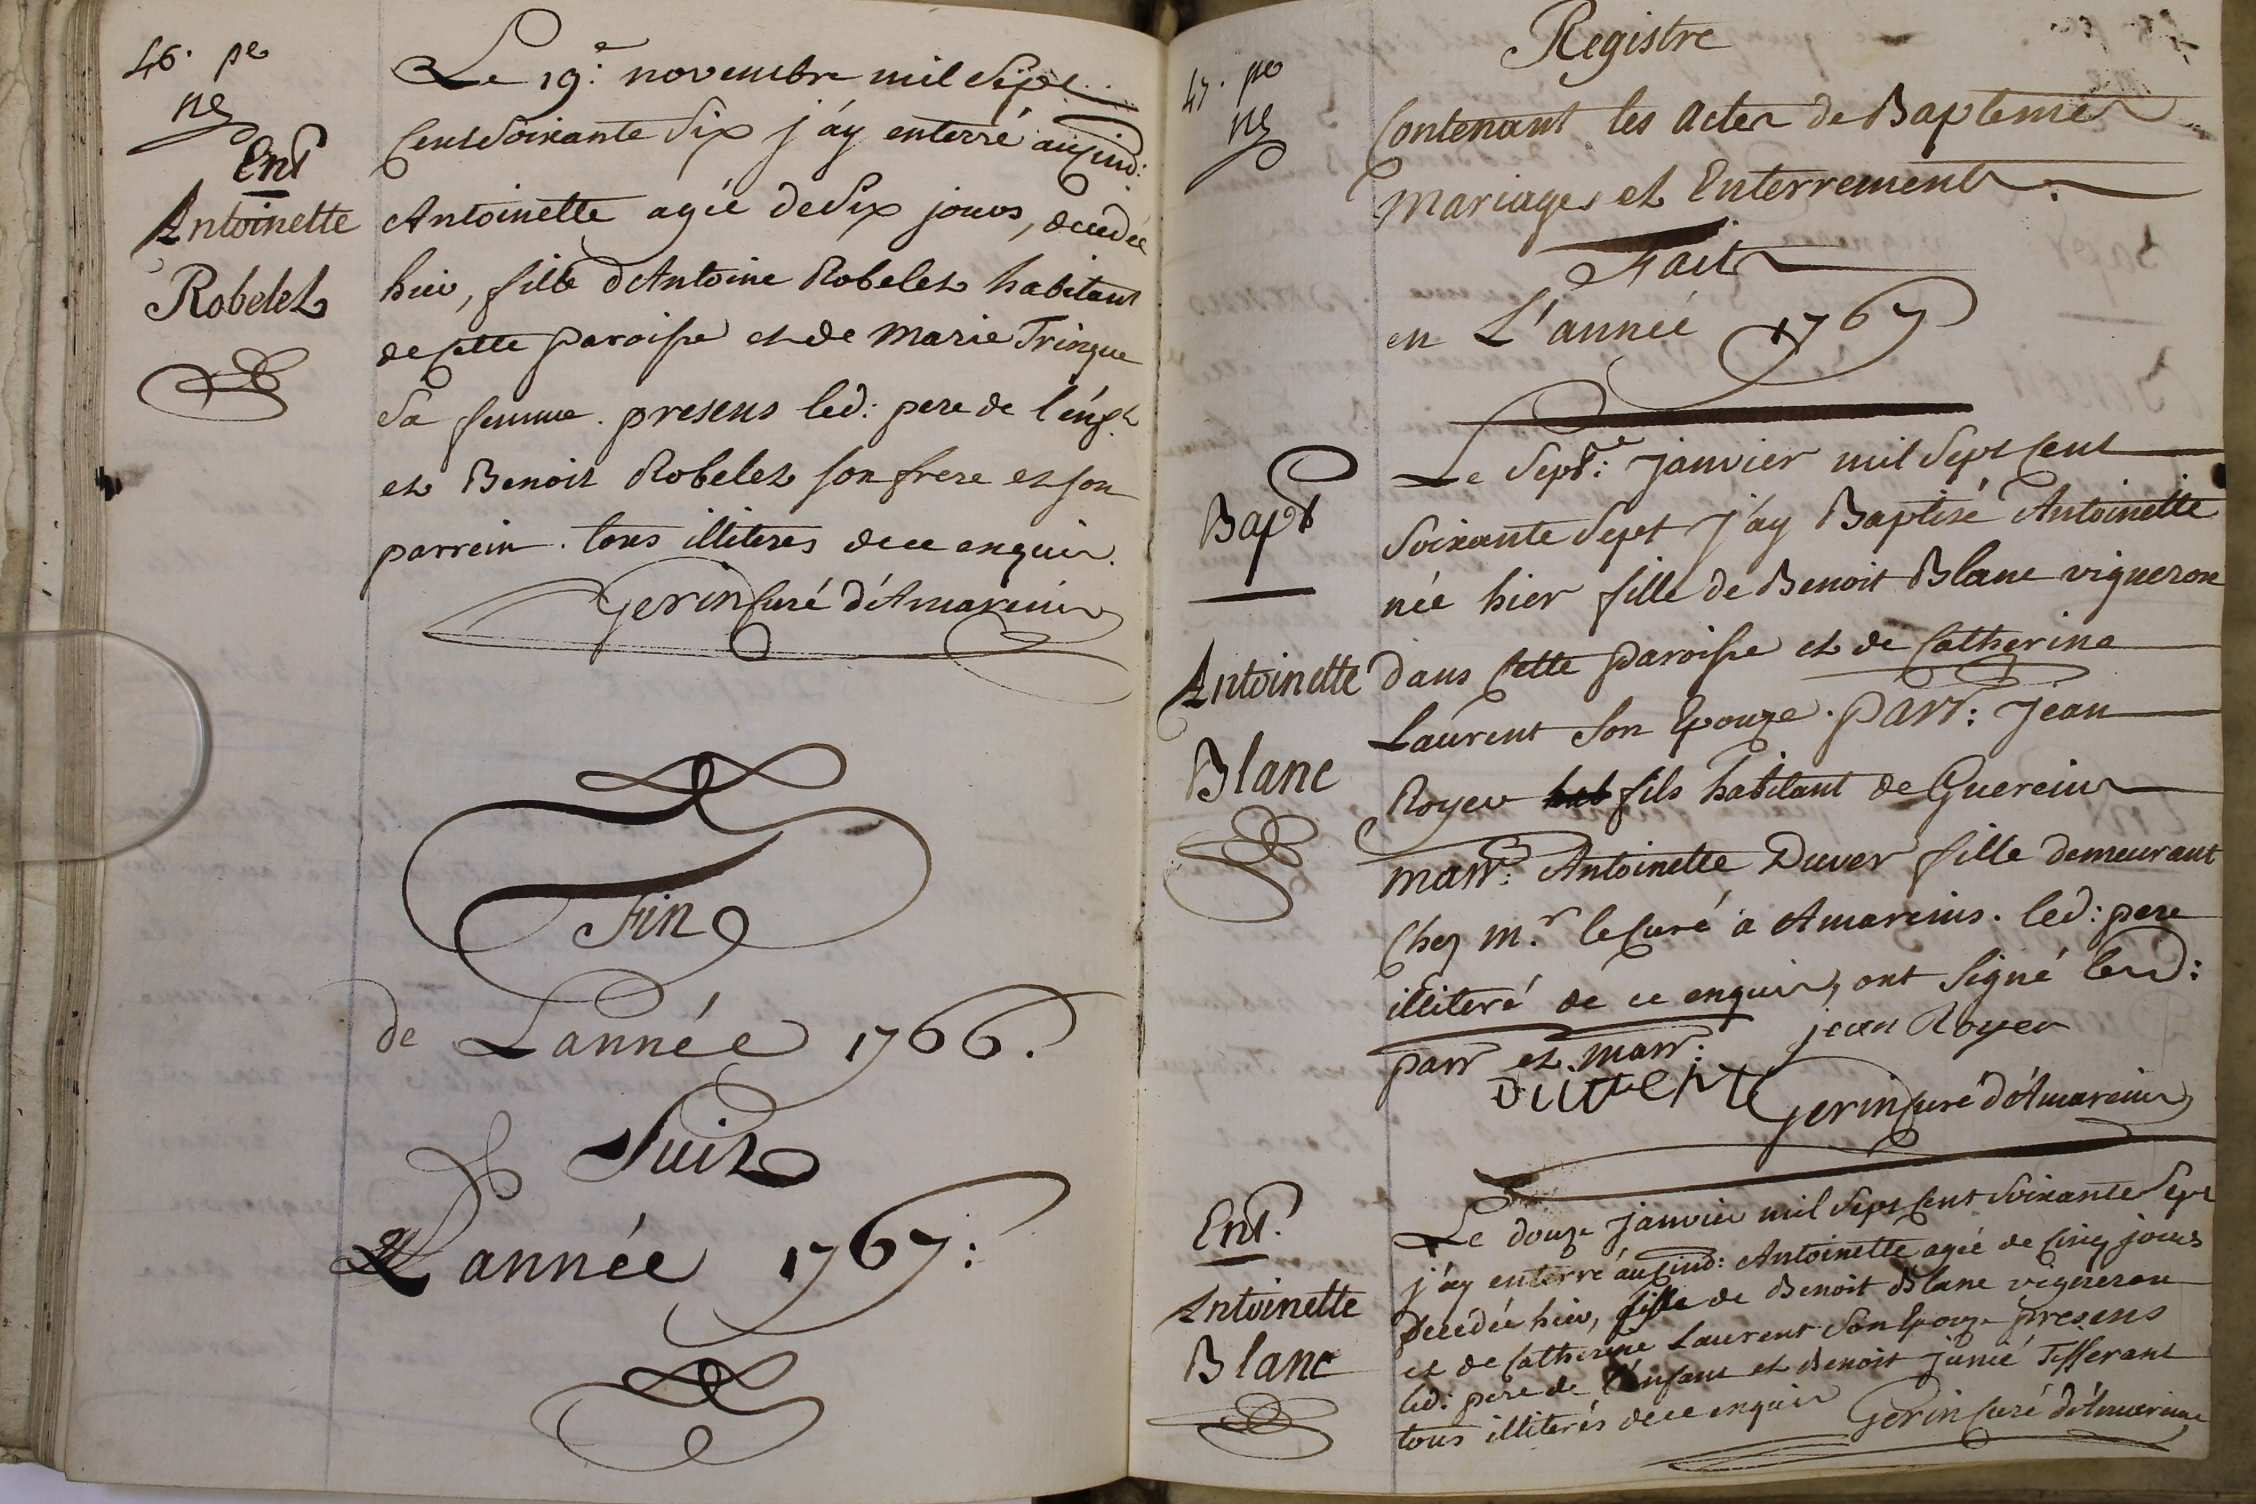 46. pe
Ent
Antoinette
Robelet
Le 19.e novembre mil Sept
Cent Soixante Six j'áy enterré au Cimd:
Antoinette agée de Six jours, decedée
hier, fille d'Antoine Robelet habitant
de Cette paroisse et de Marie Tringue
Sa femme. presens led: pere de l'enft
et Benoit Robelet son frere et son
parrein. tous illiteres de ce enquis.
Gerin Curé d'Amareins
Fin
de L'année 1766.
Suit
L'année 1767:
47. pe
Registre
Contenant les Actes de Baptemes
Mariages et Enterrements.
Fait
en L'année 1767
Bapt
Antoinette
Blanc
Le Sept.e Janvier mil Sept Cent
Soixante Sept j'ay Baptisé Antoinette
née hier fille de Benoit Blanc vigneron
dans Cette paroisse et de Catherine
Laurent Son Epouze. parr: Jean
Royer hab fils habitant de Guereins
marr: Antoinette Duver fille demeurant
Chez M.r le Curé a Amareins. led: pere
illiteré de ce enquis, ont Signé lesd:
parr et marr: jean Royer
Gerin Curé d'Amareins
Ent.
Antoinette
Blanc
Le douze Janvier mil Sept Cent Soixante Sept
j'ay enterré au Cimd: Antoinette agée de Cinq jours
decedée hier, fille de Benoit Blanc vigneron
et de Catherine Laurent Son Epouze presens
led: pere de l'enfant et Benoit Junié Tisserant
tous illiterés de ce enquis Gerin Curé d'Amareins